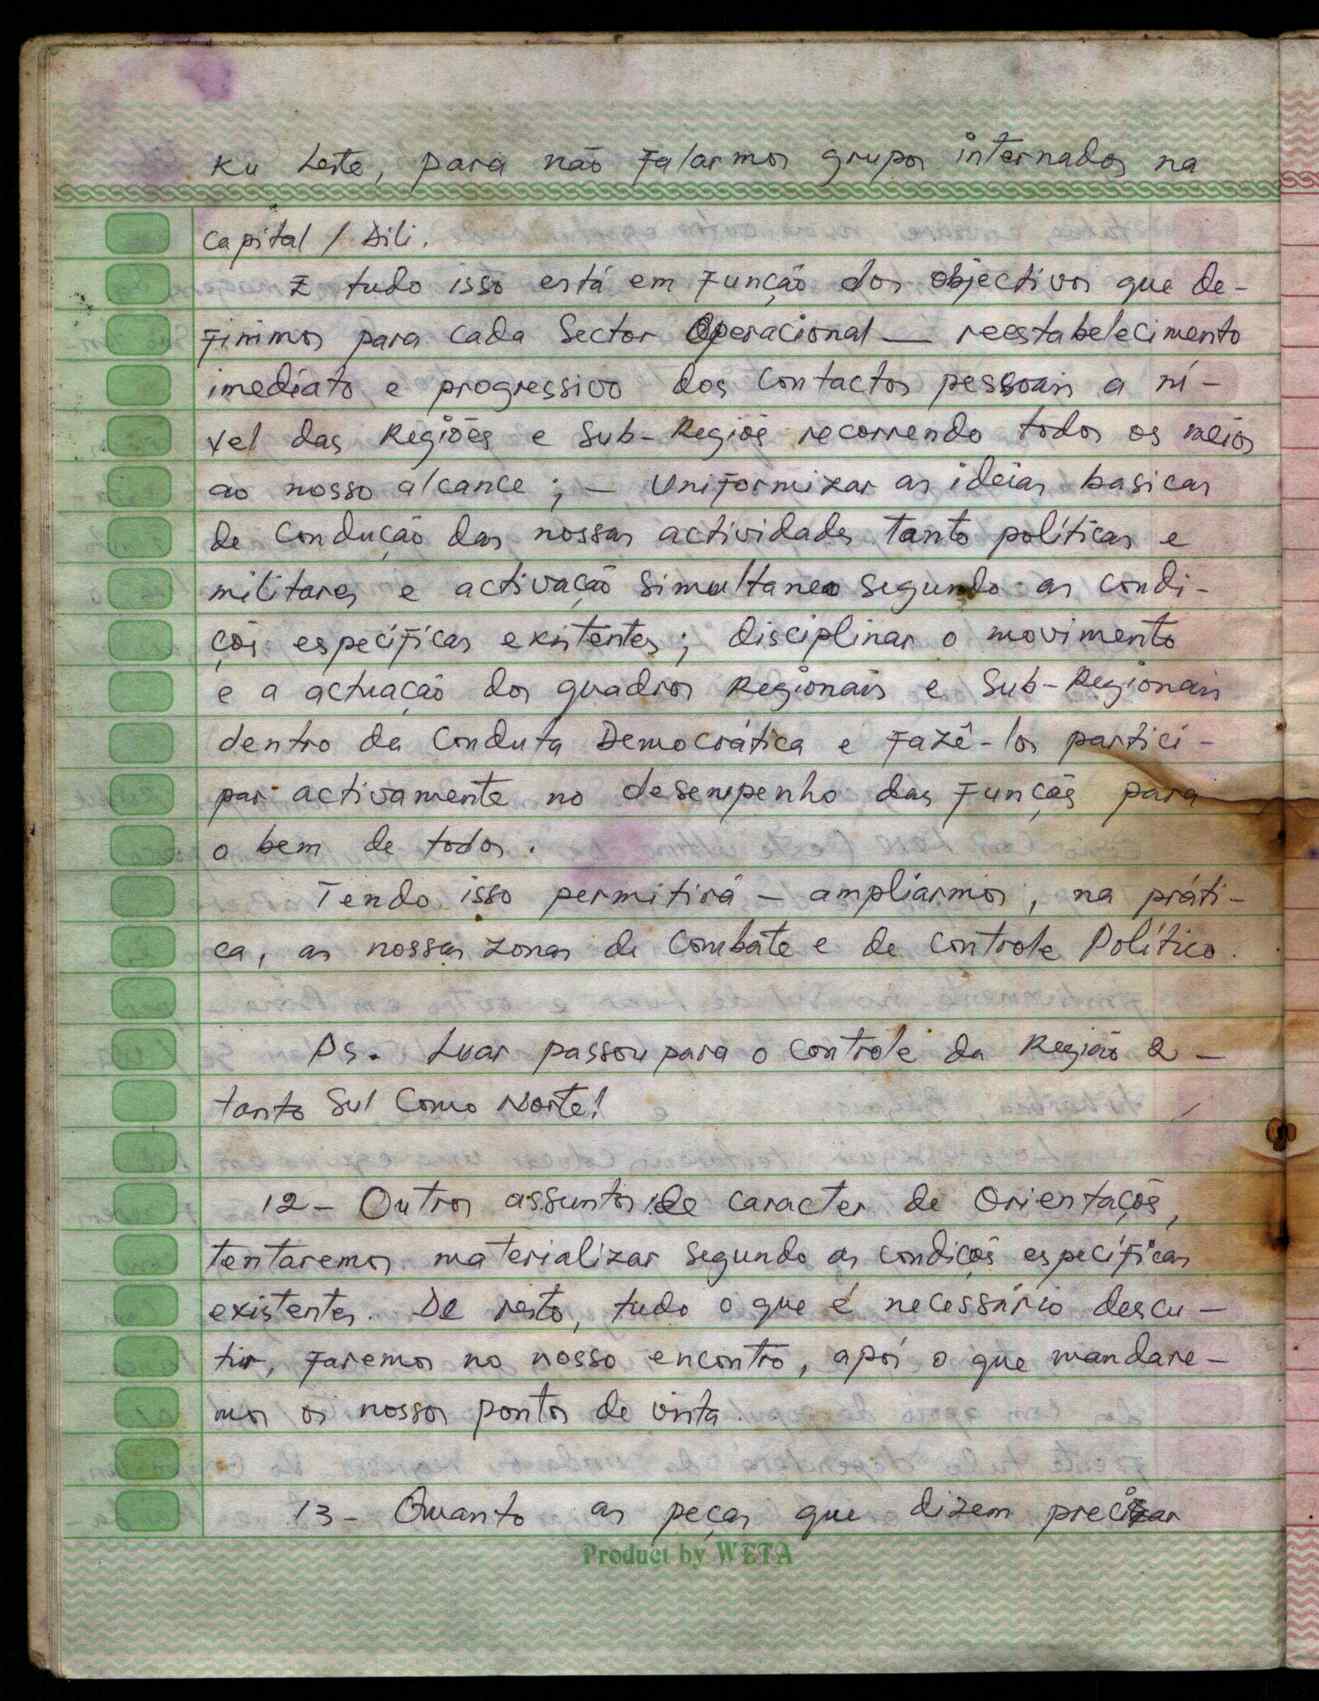 Ku Leste, para não falarmos grupos internados na
Capital / Dili.
E tudo isso está em função dos objectivos que de-
finimos para cada Sector Operacional — reestabelecimento
imediato e progressivo dos contactos pessoais a ní-
vel das Regiões e Sub-Regiõs recorrendo todos os meios
ao nosso alcance ; — Uniformizar as ideias basicas
de Condução das nossas actividades tanto políticas e
militares e activação Simultanea Segundo as Condi-
çõs específicas existentes ; disciplinar o movimento
e a actuação dos quadros Regionais e Sub-Regionais
dentro da Conduta Democrática e Fazê-los partici-
par activamente no desempenho das Funções para
o bem de todos.
Tendo isso permitirá — ampliarmos, na práti-
ca, as nossas zonas de Combate e de Controle Político.
Ps. Luar passou para o Controle da Região 2 —
tanto Sul Como Norte!
12 - Outros assuntos de caracter de Orientaçõs,
tentaremos materializar Segundo as condiçõs específicas
existentes. De resto, tudo o que é necessário descu-
tir, Faremos no nosso encontro, após o que mandare-
mos os nossos pontos de vista
13 - Quanto as peças que dizem precisar
Product by WETA